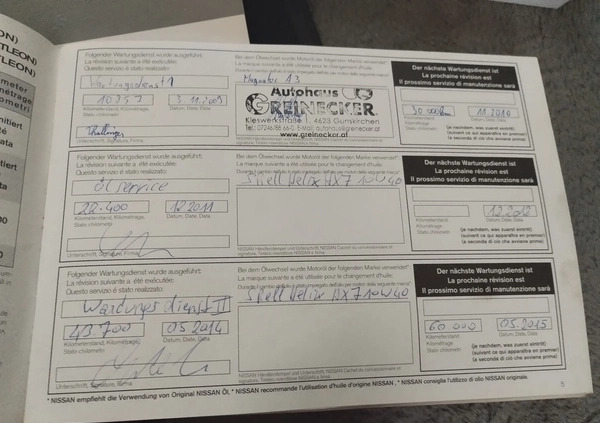 Folgender Wartungsdienst wurde ausgeführt:
La révision suivante a été exécutée:
Questo servizio è stato realizzato:
Wartungsdienst 1
3.11.2009
Kilometerstand, Kilométrage, Datum, Date, Data
Stato chilometri
Unterschrift, Signature, Firma
Bei dem Ölwechsel wurde Motoröl der folgenden Marke verwendet*
La marque suivante a été utilisée pour le changement d'huile:
Autohaus
GREINECKER
Kieswerkstraße 1, 4623 Gunskirchen
www.greinecker.at
Der nächste Wartungsdienst ist
La prochaine révision est
Il prossimo servizio di manutenzione sarà
30 000 km 11.2010
Kilometerstand, Kilométrage, Datum, Date, Data
Stato chilometri
(je nachdem, was zuerst eintritt)
(suivant ce qui apparaîtra en premier)
(a seconda di ciò che avviene prima)
Folgender Wartungsdienst wurde ausgeführt:
La révision suivante a été exécutée:
Questo servizio è stato realizzato:
Öl service
22.400 12.2011
Kilometerstand, Kilométrage, Datum, Date, Data
Stato chilometri
Unterschrift, Signature, Firma
Bei dem Ölwechsel wurde Motoröl der folgenden Marke verwendet*
La marque suivante a été utilisée pour le changement d'huile:
Shell Helix HX7 10W40
Der nächste Wartungsdienst ist
La prochaine révision est
Il prossimo servizio di manutenzione sarà
12.2012
Kilometerstand, Kilométrage, Datum, Date, Data
Stato chilometri
(je nachdem, was zuerst eintritt)
(suivant ce qui apparaîtra en premier)
(a seconda di ciò che avviene prima)
Folgender Wartungsdienst wurde ausgeführt:
La révision suivante a été exécutée:
Questo servizio è stato realizzato:
Wardungsdienst II
43 700 05.2014
Kilometerstand, Kilométrage, Datum, Date, Data
Stato chilometri
Unterschrift, Signature, Firma
Bei dem Ölwechsel wurde Motoröl der folgenden Marke verwendet*
La marque suivante a été utilisée pour le changement d'huile:
Shell Helix HX7 10W40
Der nächste Wartungsdienst ist
La prochaine révision est
Il prossimo servizio di manutenzione sarà
60 000 05.2015
Kilometerstand, Kilométrage, Datum, Date, Data
Stato chilometri
(je nachdem, was zuerst eintritt)
(suivant ce qui apparaîtra en premier)
(a seconda di ciò che avviene prima)
* NISSAN empfiehlt die Verwendung von Original NISSAN Öl, * NISSAN recommande l'utilisation d'huile d'origine NISSAN, * NISSAN consiglia l'utilizzo di olio NISSAN originale.
5